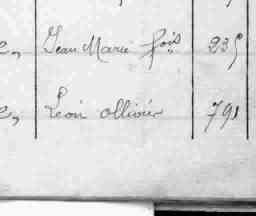 e, Jean Marie fois 235
e, Léon ollivier 791